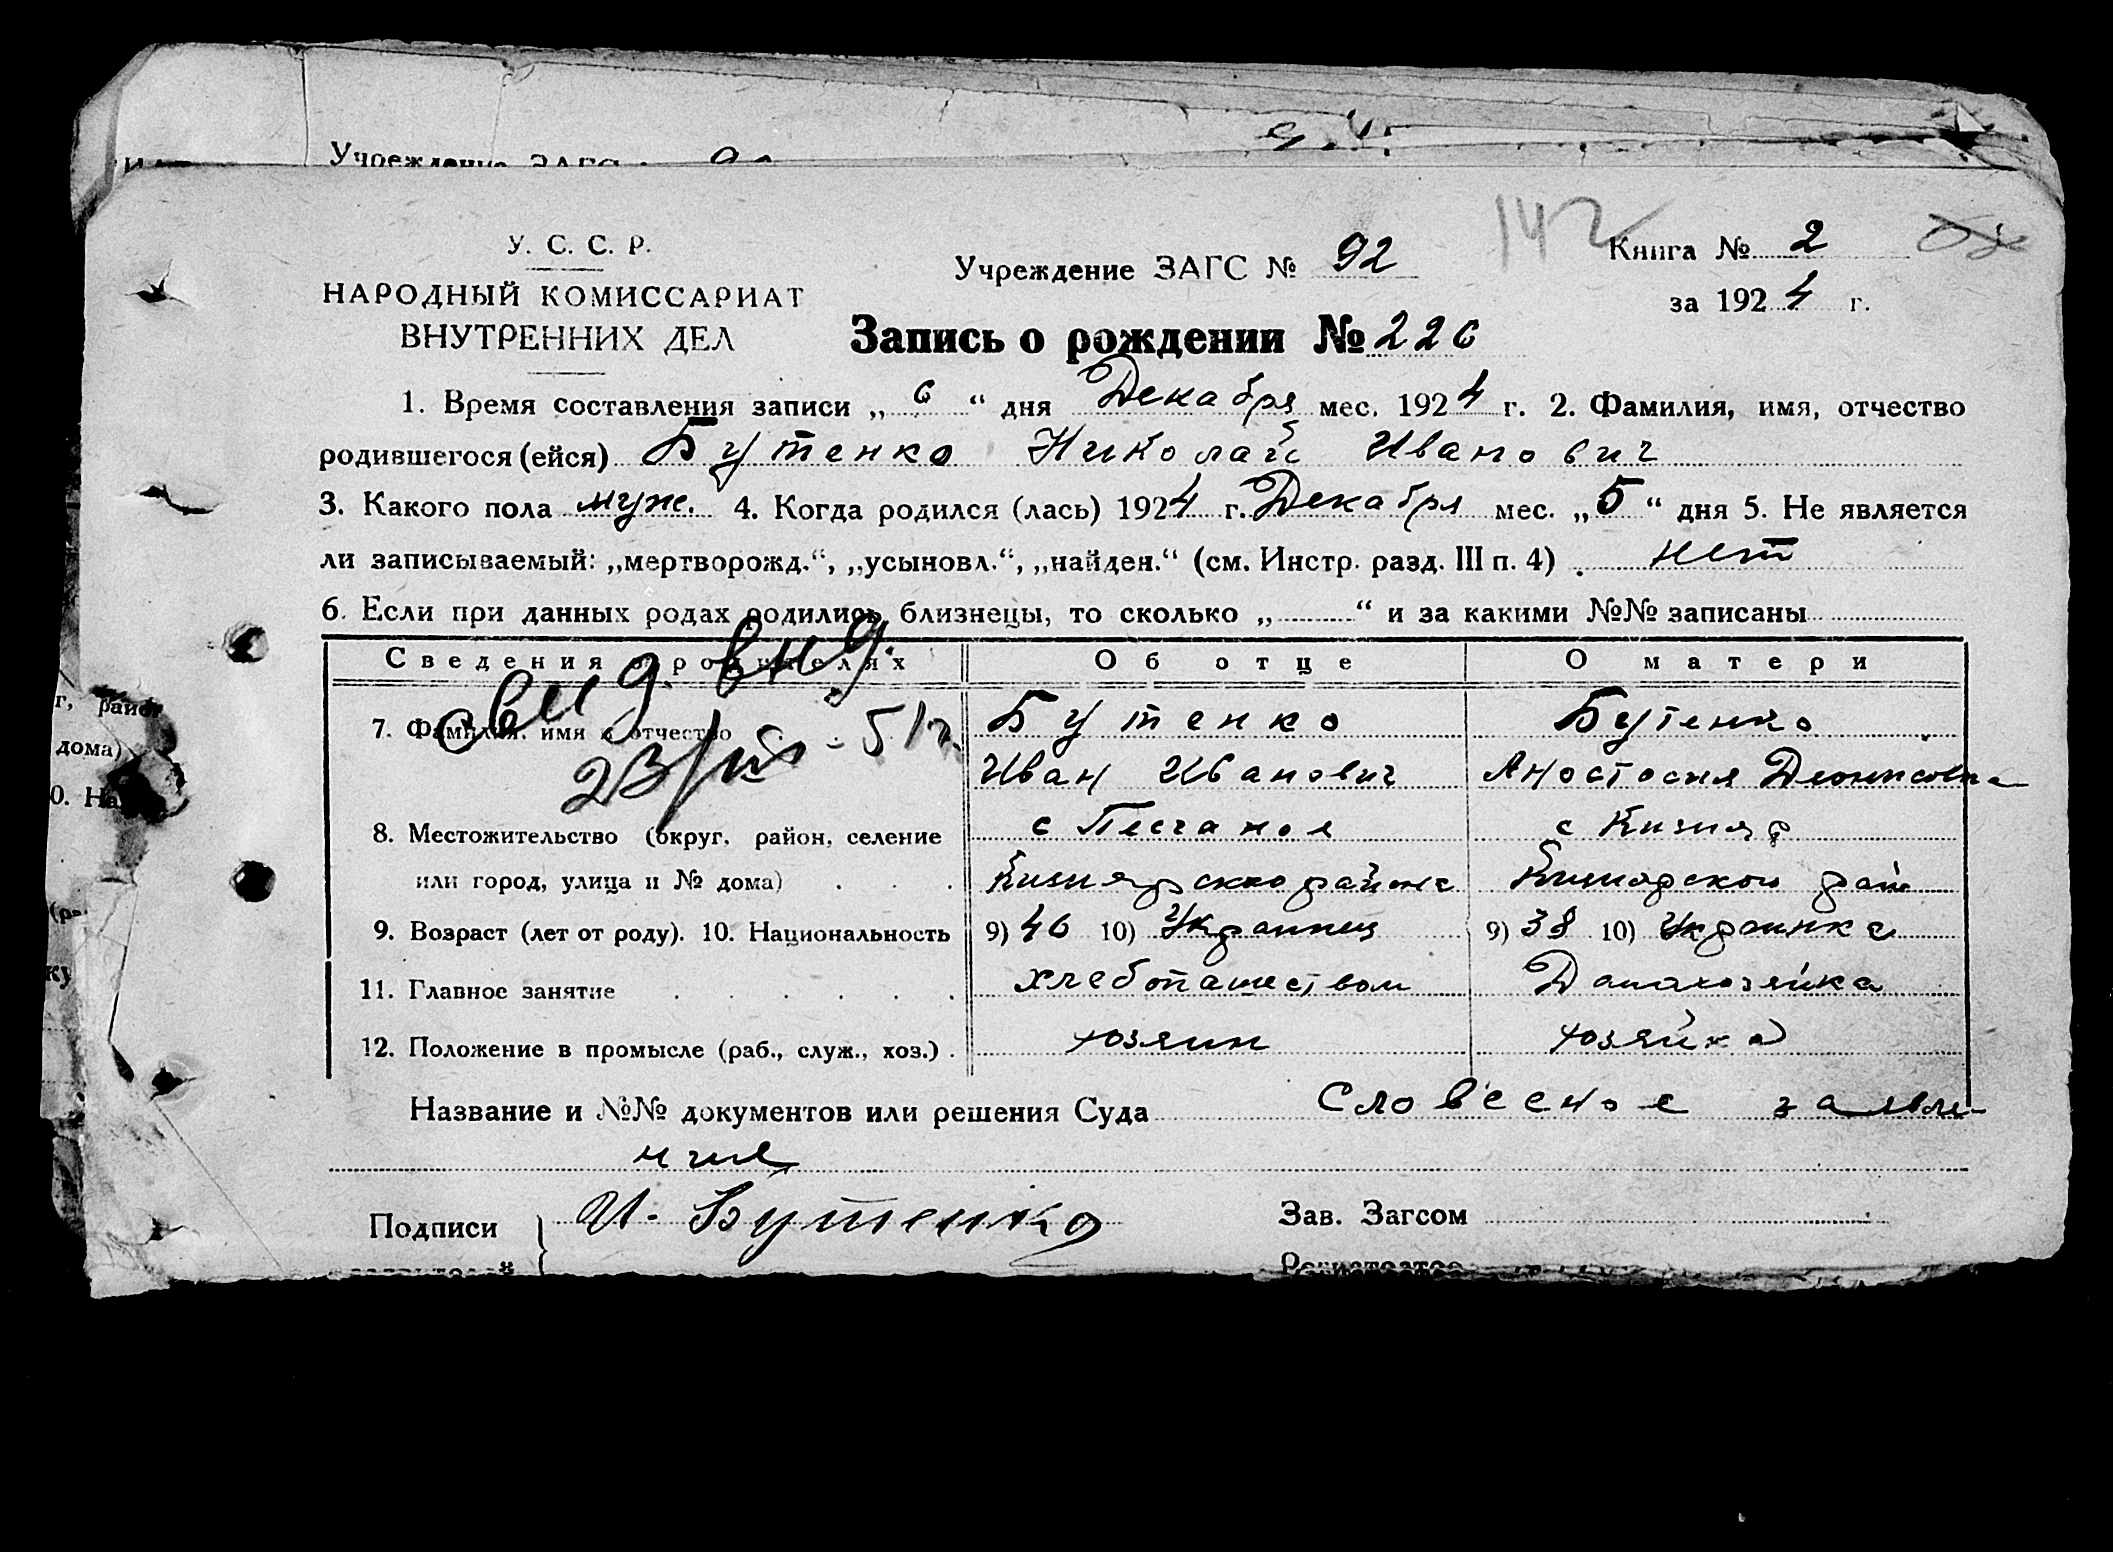 Учреждение ЗАГС
142
У. С. С. Р.
НАРОДНЫЙ КОМИССАРИАТ
ВНУТРЕННИХ ДЕЛ
Учреждение ЗАГС № 92
Книга № 2
за 1924 г.
Запись о рождении № 226
1. Время составления записи „6“ дня Декабря мес. 1924 г. 2. Фамилия, имя, отчество
родившегося (ейся) Бутенко Николай Иванович
3. Какого пола муж. 4. Когда родился (лась) 1924 г. Декабря мес. „5“ дня 5. Не является
ли записываемый: „мертворожд.“, „усыновл.“, „найден.“ (см. Инстр. разд. III п. 4) . нет
6. Если при данных родах родились близнецы, то сколько „ “ и за какими №№ записаны
Сведения о родителях Об отце О матери
свид. выд.
23/ 51г.
7. Фамилия, имя и отчество Бутенко Бутенко
Иван Иванович Аностосия Деонисовна
8. Местожительство (округ, район, селение с Песчаное с Кизияр
или город, улица и № дома) Кизиярского района Кизиярского рай
9. Возраст (лет от роду). 10. Национальность 9) 46 10) Украинец 9) 38 10) Украинка
11. Главное занятие хлебопашеством Домохозяйка
12. Положение в промысле (раб., служ., хоз.) . хозяин хозяйка
Название и №№ документов или решения Суда Словесное заявле-
ние
Подписи И. Бутенко Зав. Загсом
г, район
дома)
0. На
ку